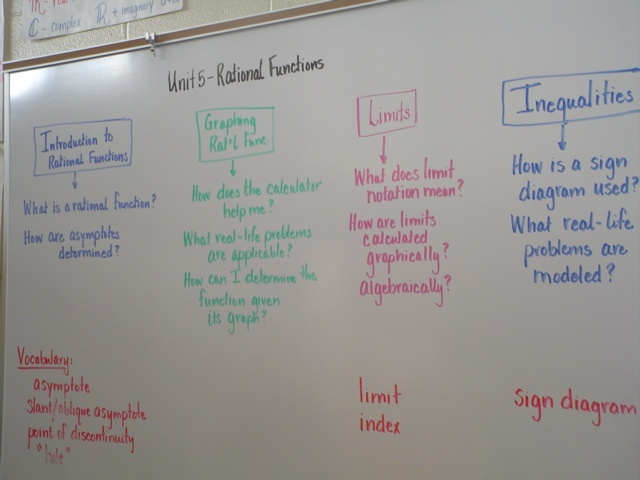 ℂ - complex ℝ + imaginary
Unit 5 - Rational Functions
Introduction to
Rational Functions
What is a rational function?
How are asymptotes
determined?
Graphing
Rat'l Func.
How does the calculator
help me?
What real-life problems
are applicable?
How can I determine the
function given
its graph?
Limits
What does limit
notation mean?
How are limits
calculated
graphically?
algebraically?
Inequalities
How is a sign
diagram used?
What real-life
problems are
modeled?
Vocabulary:
asymptote
slant/oblique asymptote
point of discontinuity
"hole"
limit
index
sign diagram